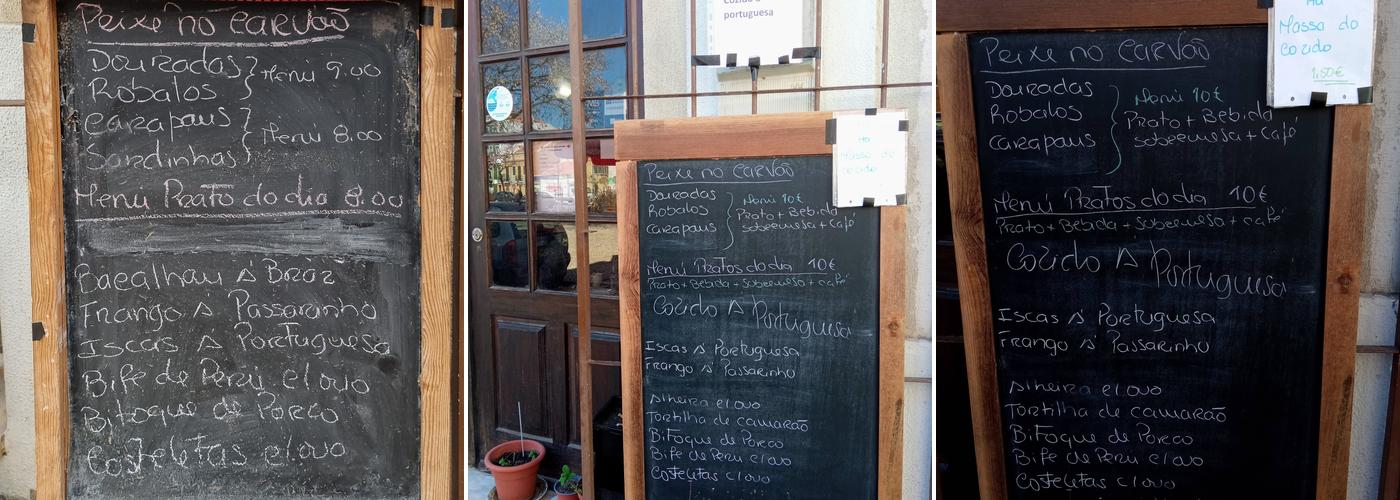 Peixe no Carvão
Douradas
Robalos
Menu 9.00
Carapaus
Sardinhas
Menu 8.00
Menu Prato do dia 8.00
Bacalhau à Braz
Frango à Passarinho
Iscas à Portuguesa
Bife de Peru c/ ovo
Bitoque de Porco
Costeletas c/ ovo
portuguesa
Há
Massa do
Cozido
Peixe no Carvão
Douradas
Robalos
Carapaus
Menu 10€
Prato + Bebida
sobremesa + Café
Menu Pratos do dia 10€
Prato + Bebida + Sobremesa + café
Cozido à Portuguesa
Iscas à Portuguesa
Frango à Passarinho
Alheira c/ ovo
Tortilha de camarão
Bitoque de Porco
Bife de Peru c/ ovo
Costeletas c/ ovo
Há
Massa do
Cozido
1,50€
Peixe no Carvão
Douradas
Robalos
Carapaus
Menu 10€
Prato + Bebida
sobremesa + Café
Menu Pratos do dia 10€
Prato + Bebida + Sobremesa + café
Cozido à Portuguesa
Iscas à Portuguesa
Frango à Passarinho
Alheira c/ ovo
Tortilha de camarão
Bitoque de Porco
Bife de Peru c/ ovo
Costeletas c/ ovo